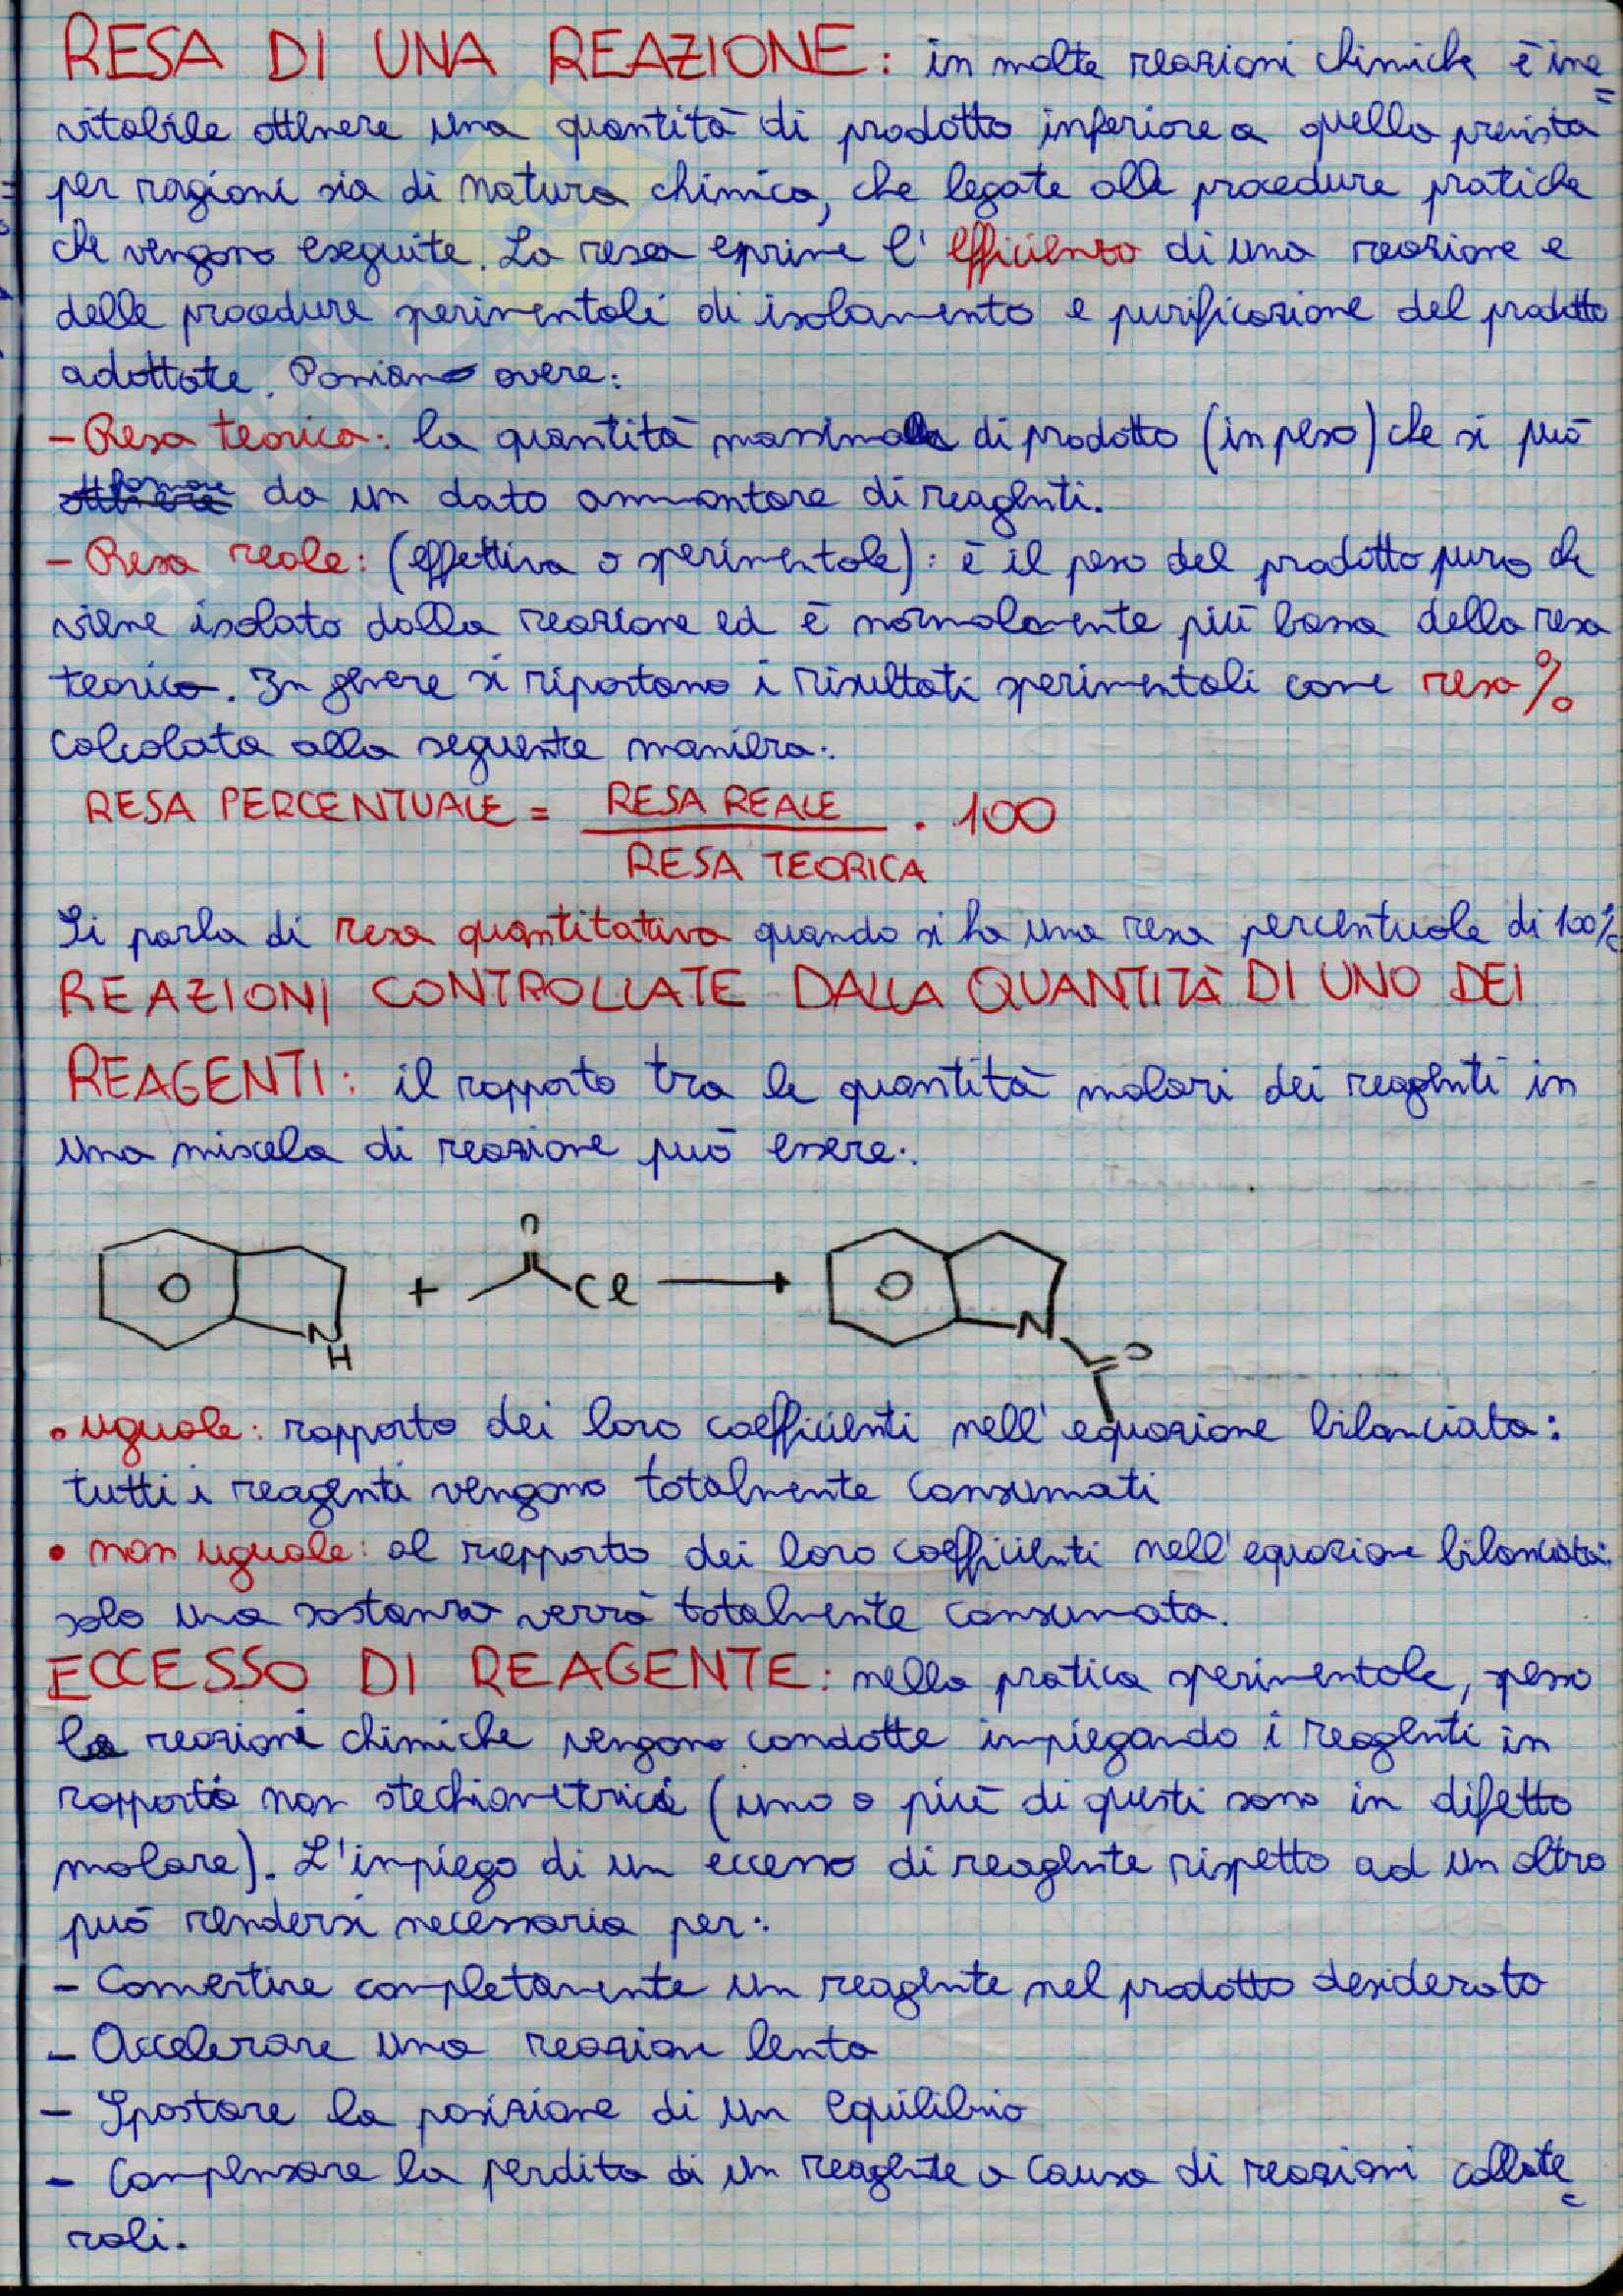 RESA DI UNA REAZIONE: in molte reazioni chimiche è ine=
vitabile ottenere una quantità di prodotto inferiore a quella prevista
per ragioni sia di natura chimica, che legate alle procedure pratiche
che vengono eseguite. La resa esprime l'efficienza di una reazione e
delle procedure sperimentali di isolamento e purificazione del prodotto
adottate. Possiamo avere:
- Resa teorica: la quantità massima di prodotto (in peso) che si può
formare da un dato ammontare di reagenti.
- Resa reale: (effettiva o sperimentale): è il peso del prodotto puro che
viene isolato dalla reazione ed è normalmente più bassa della resa
teorica. In genere si riportano i risultati sperimentali come resa %
calcolata alla seguente maniera:
RESA PERCENTUALE = RESA REALE · 100
RESA TEORICA
Si parla di resa quantitativa quando si ha una resa percentuale di 100%
REAZIONI CONTROLLATE DALLA QUANTITÀ DI UNO DEI
REAGENTI: il rapporto tra le quantità molari dei reagenti in
una miscela di reazione può essere:
O
+ Cl → N
N H O
• uguale: rapporto dei loro coefficienti nell'equazione bilanciata:
tutti i reagenti vengono totalmente consumati
• non uguale: al rapporto dei loro coefficienti nell'equazione bilanciata:
solo una sostanza verrà totalmente consumata.
ECCESSO DI REAGENTE: nella pratica sperimentale, spesso
le reazioni chimiche vengono condotte impiegando i reagenti in
rapporti non stechiometrici (uno o più di questi sono in difetto
molare). L'impiego di un eccesso di reagente rispetto ad un altro
può rendersi necessario per:
- Convertire completamente un reagente nel prodotto desiderato
- Accelerare una reazione lenta
- Spostare la posizione di un equilibrio
- Compensare la perdita di un reagente a causa di reazioni collate=
rali.